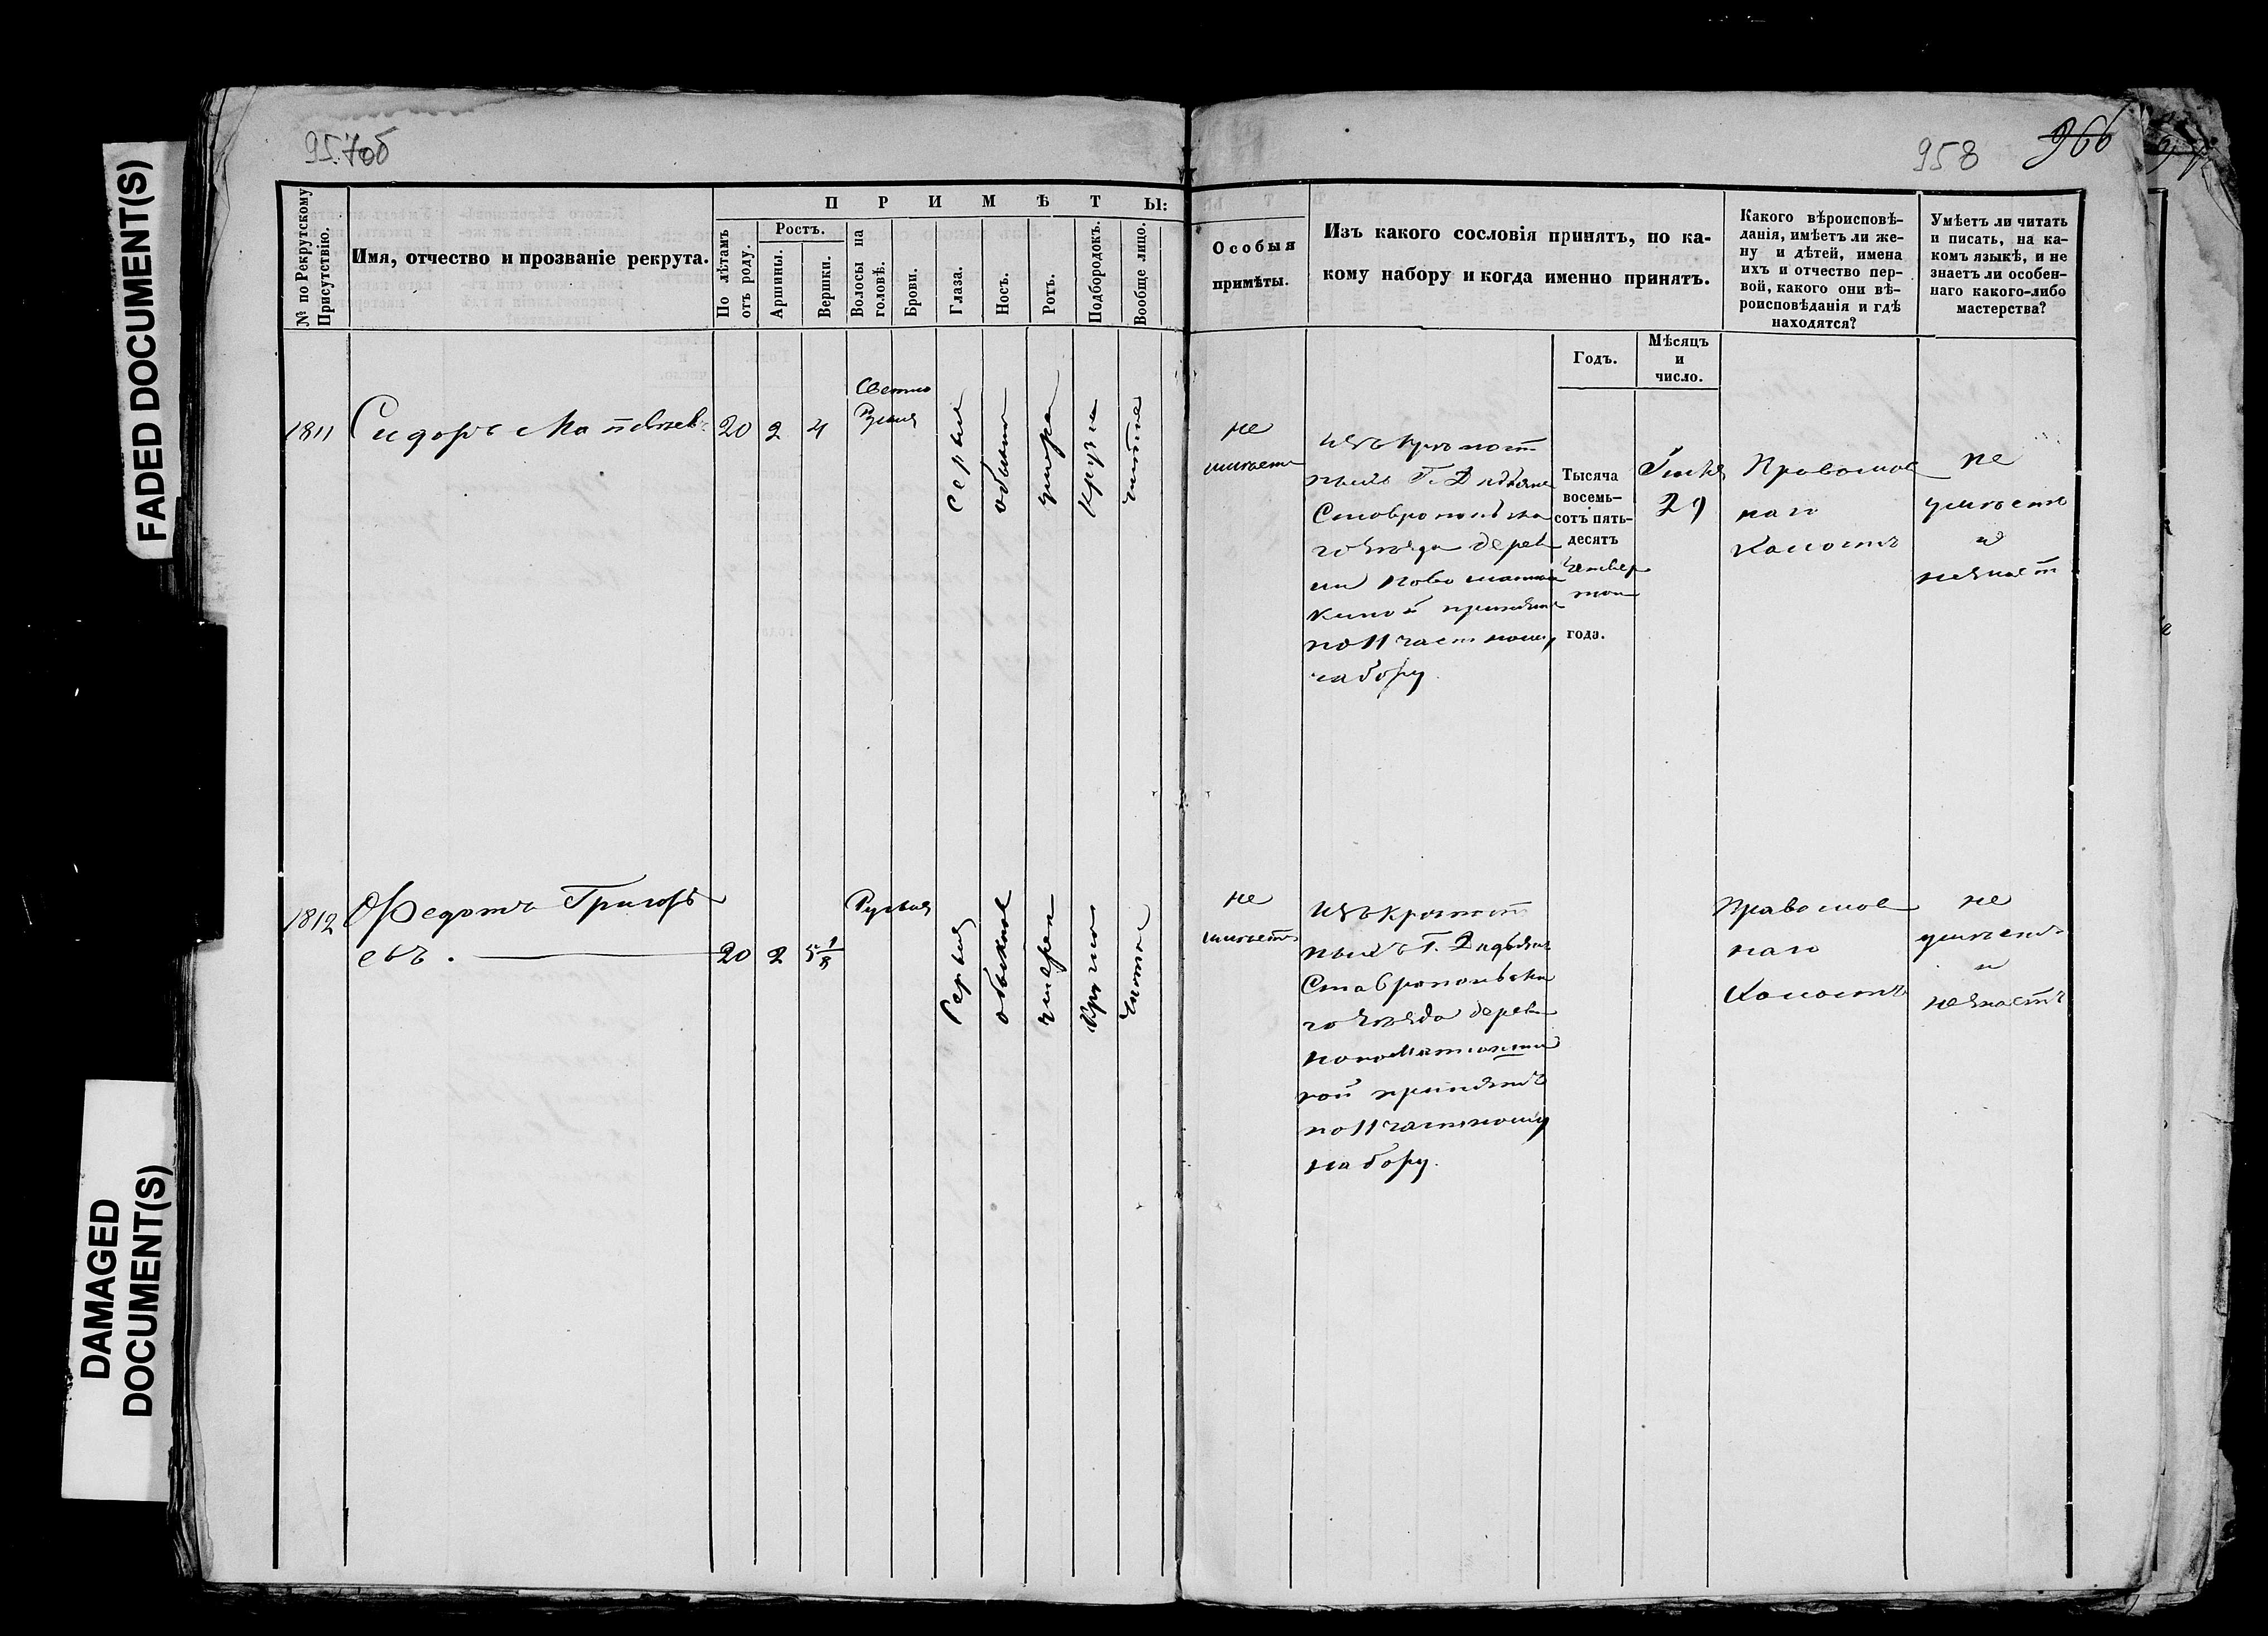 FADED DOCUMENT(S)
DAMAGED
DOCUMENT(S)
957об
958 966
№ по Рекрутскому
Присутствію.
Имя, отчество и прозваніе рекрута.
П Р И М Ѣ Т Ы:
По лѣтамъ
отъ роду.
Ростъ.
Аршины.
Вершки.
Волосы на
головѣ.
Брови.
Глаза.
Носъ.
Ротъ.
Подбородокъ.
Вообще лицо.
Особыя
примѣты.
Изъ какого сословія принятъ, по ка-
кому набору и когда именно принятъ.
Годъ.
Мѣсяцъ
и
число.
Какого вѣроисповѣ-
данія, имѣетъ ли же-
ну и дѣтей, имена
ихъ и отчество пер-
вой, какого они вѣ-
роисповѣданія и гдѣ
находятся?
Умѣетъ ли читать
и писать, на ка-
комъ языкѣ, и не
знаетъ ли особен-
наго какого-либо
мастерства?
1811
Сидоръ Матвѣевъ
20 2 4
Светло
Русыя
Серыя
обыкно
умере
Кругло
чистое
не
имѣетъ
изъ крѣпост
ныхъ Г.
Ставропольска
го Уѣзда дерев
ни Ново
киной принятъ
по 11 частному
набору
Тысяча
восемь-
сотъ пять-
десятъ
четвер
таго
года.
29
Православ
наго
Холостъ
не
умѣетъ
и
незнаетъ
1812
Федотъ Григорь
евъ.
20 2 5 1/8
Русыя
Серыя
обыкное
умерен
Кругло
Чистое
не
имѣетъ
изъ крѣпост
ныхъ Г.
Ставропольска
го Уѣзда дерев
кой принятъ
по 11 частному
набору.
Православ
наго
Холостъ
не
умѣетъ
и
незнаетъ